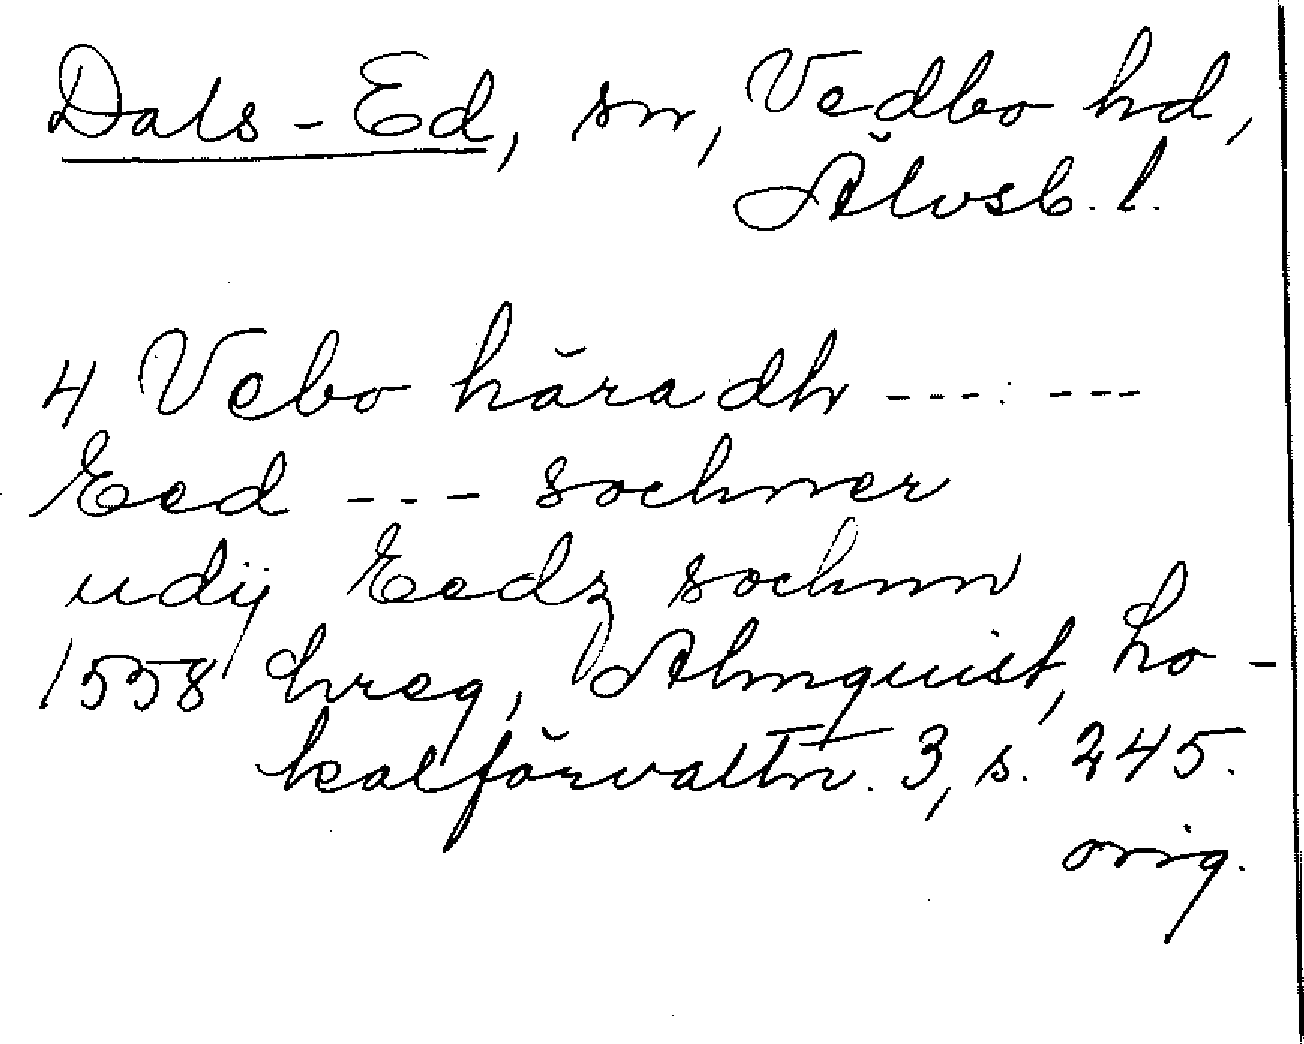 Dals-Ed, sn, Vedbo hd,
Älvsb. l.
4 Vebo häradh --- ---
Eed --- sochner
udij Eedz sochnn
1558 hreg, Almquist, Lo-
kalförvaltn. 3, s. 245.
orig.